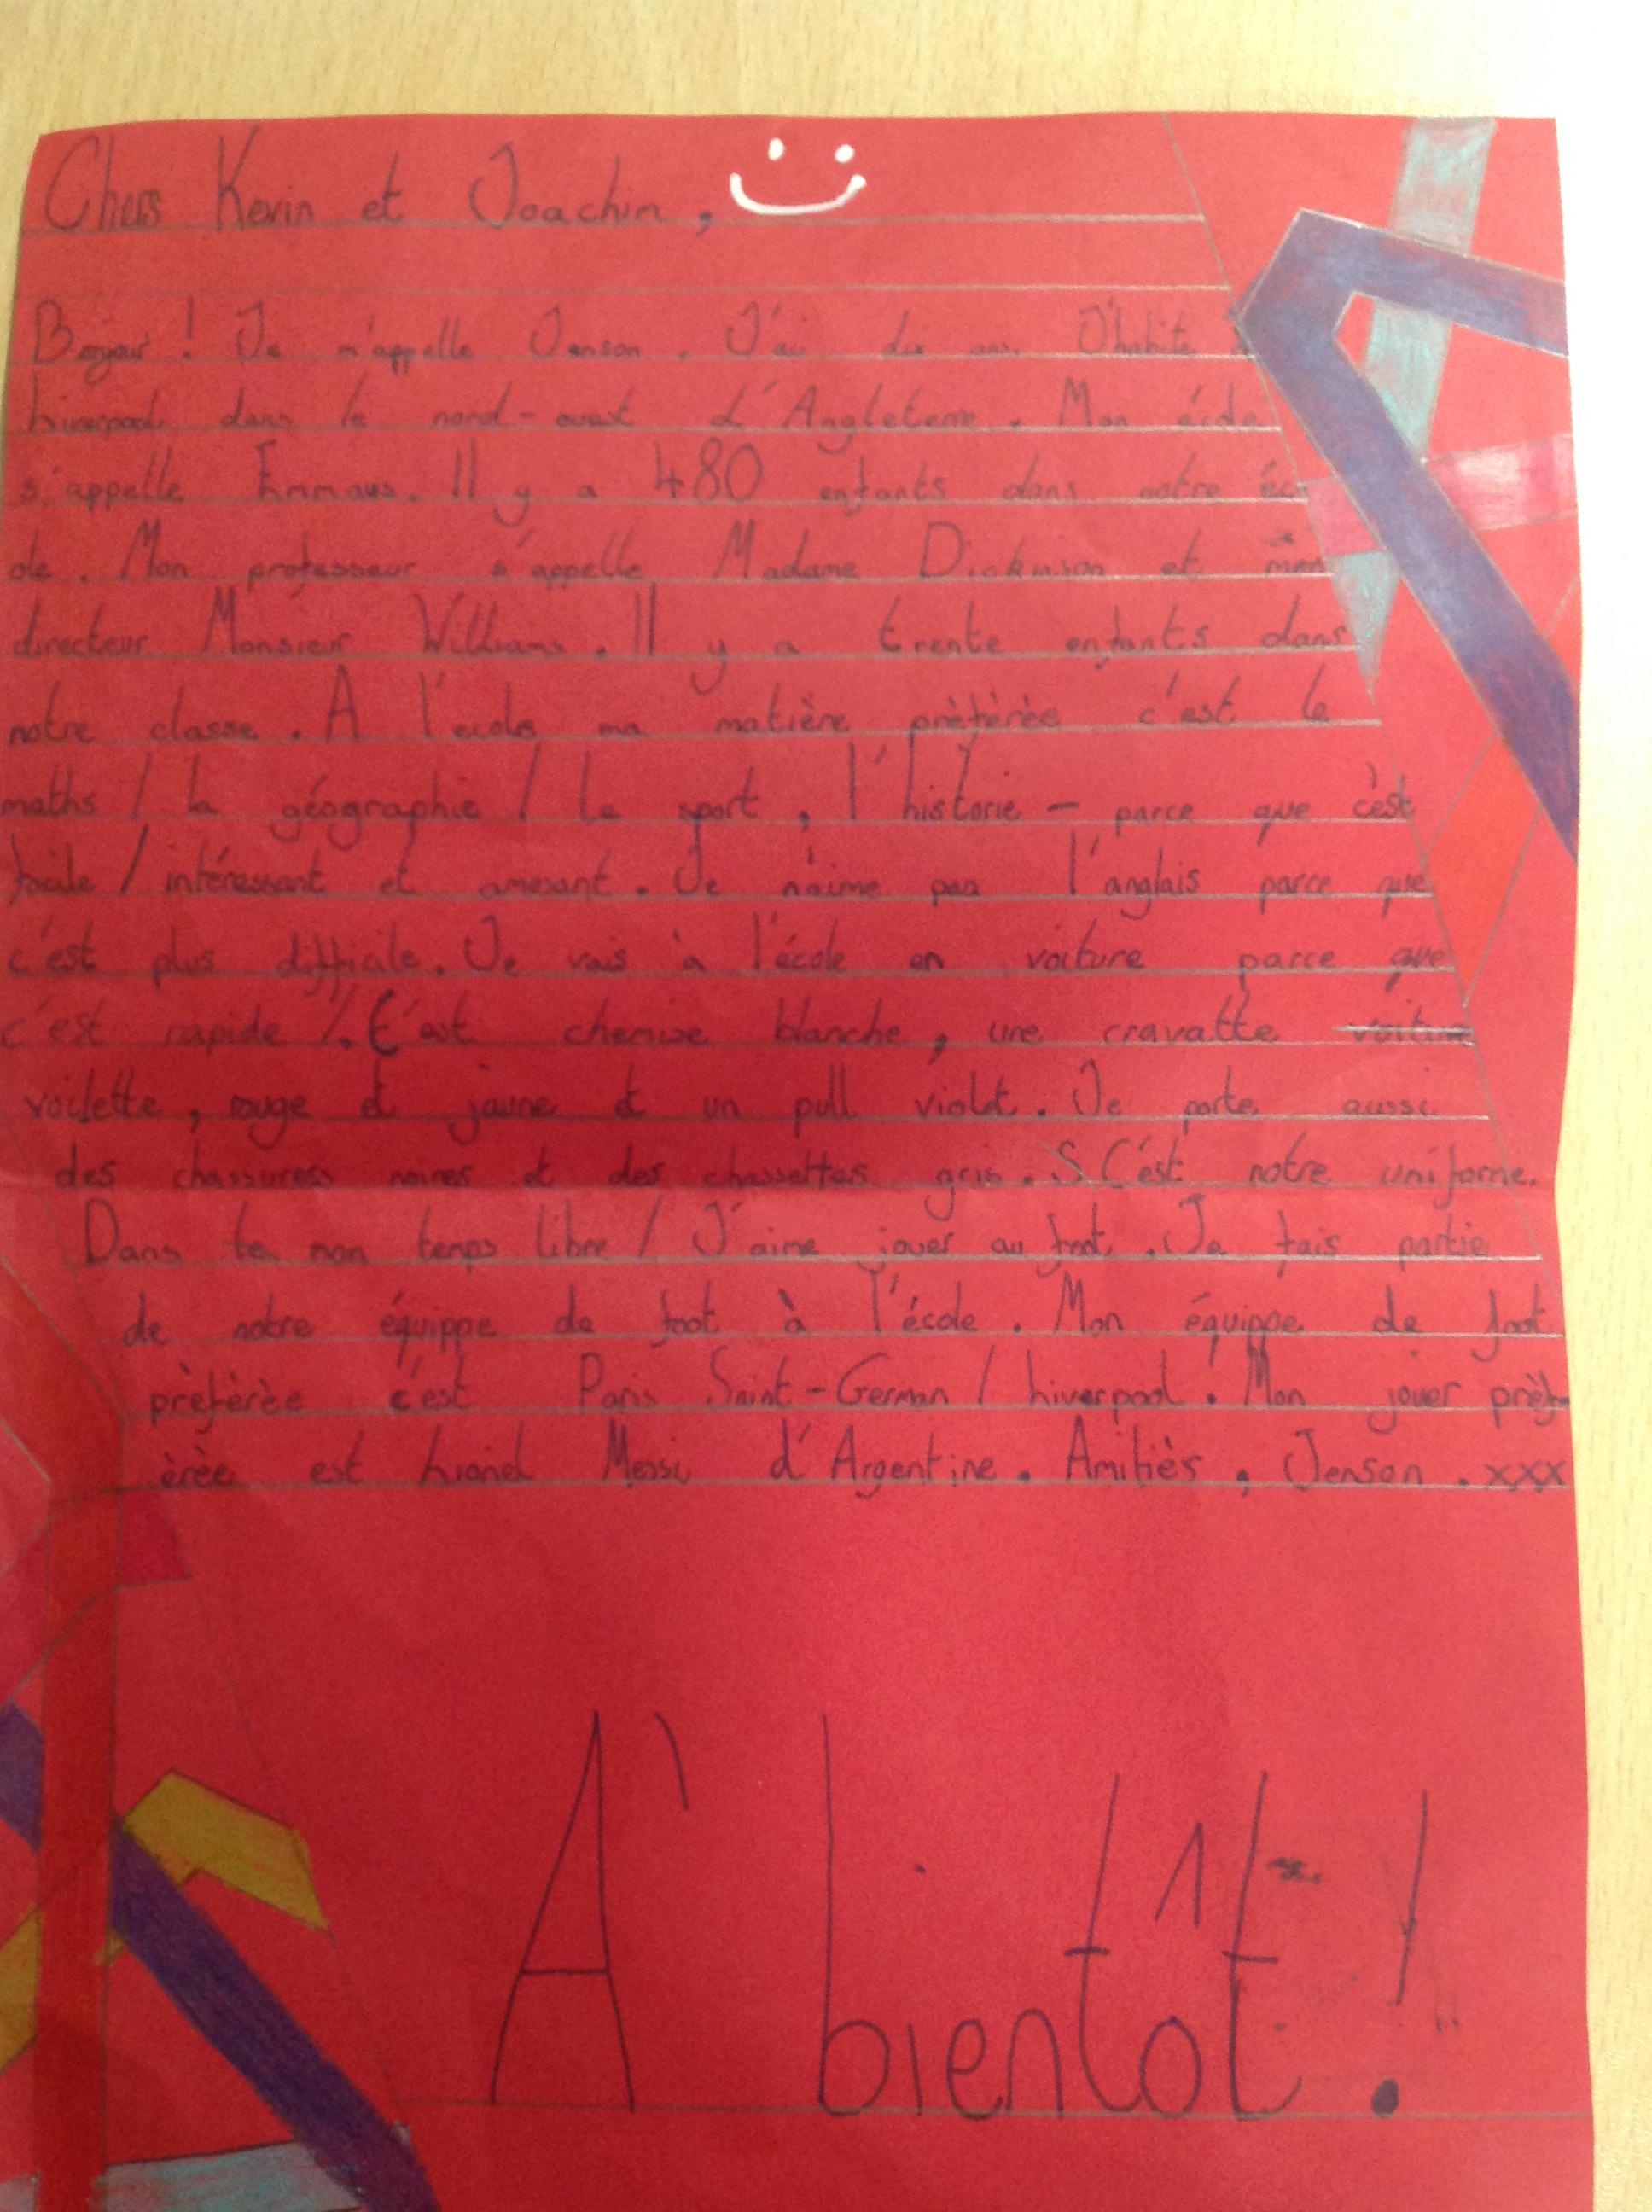 Chers Kevin et Joachim,
Bonjour ! Je m'appelle Jenson. J'ai dix ans. J'habite à
Liverpool dans le nord-ouest d'Angleterre. Mon école
s'appelle Emmaus. Il y a 480 enfants dans notre éc
ole. Mon professeur s'appelle Madame Dickinson et mon
directeur Monsieur Williams. Il y a trente enfants dans
notre classe. A l'ecole ma matière prèfèrèe c'est le
maths / la géographie / le sport, l'historie - parce que c'est
facile / intéressant et amusant. Je n'aime pas l'anglais parce que
c'est plus difficile. Je vais à l'école en voiture parce que
c'est rapide /. C'est chemise blanche, une cravatte voiture
voilette, rouge et jaune et un pull violet. Je porte aussi
des chassures noires et des chassettes gris. S C'est notre uniforme.
Dans te mon temps libre / J'aime jouer au foot. Je fais partie
de notre équippe de foot à l'école. Mon équippe de foot
prèfèrèe c'est Paris Saint-German / Liverpool. Mon jouer prèf-
èrèe est Lionel Messi d'Argentine. Amitiès, Jenson. xxx
A' bientôt !